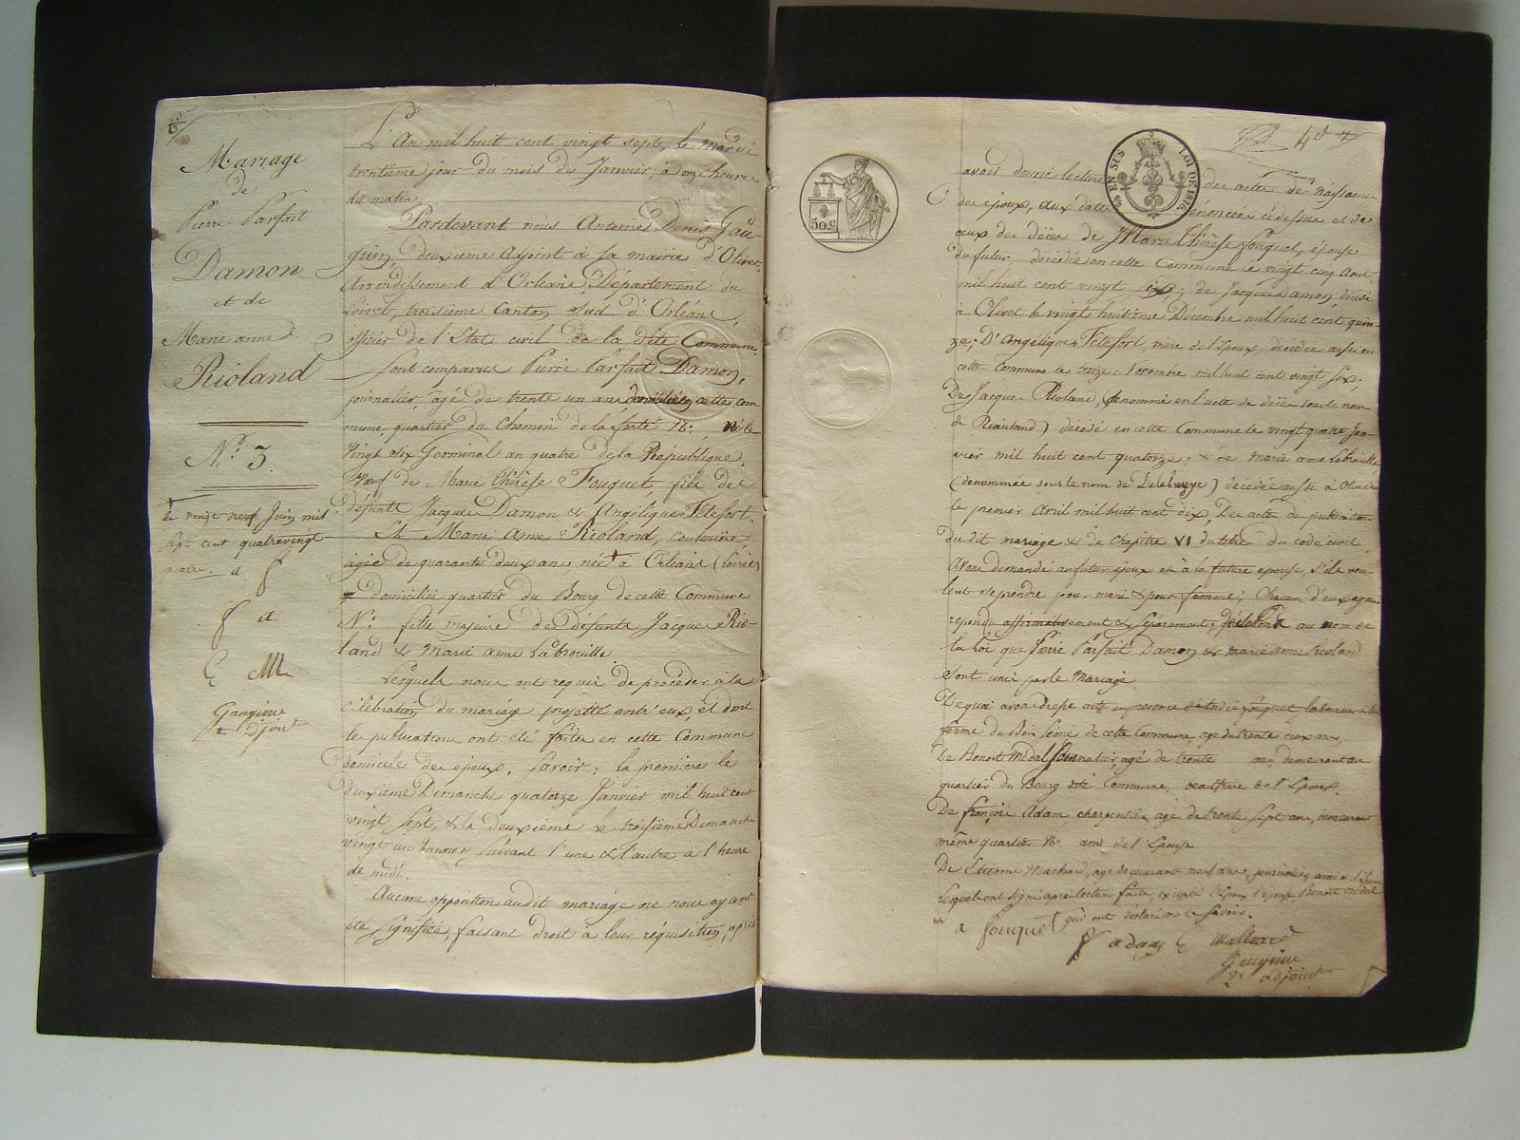 Mariage
de
Pierre Parfait
Damon
et de
Marie anne
Rioland
N.° 3.
le vingt neuf Juin mil
Sept cent quatrevingt
a f
f a
Gaugieu
adjoint
L'An mil huit cent vingt sept, le mardi
trentieme jour du mois de Janvier, à onze heures
du matin
Pardevant nous Antoine Denis Gau-
gieu, deuxieme Adjoint à la mairie d'Olivet,
Arrondissement d'Orléans, Département du
Loiret, troisieme Canton Sud d'Orléans,
officier de l'Etat civil de la dite Commune,
Sont comparus Pierre Parfait Damon,
journalier, agé de trente un ans domicilié en cette com
mune, quartier du Chemin de la ferté N.° né le
Vingt six Germinal an quatre de la République.
Veuf de Marie Thérèse Fouquet, fils de
défunts Jacques Damon & Angélique Telefort.
Et Marie Anne Rioland, couturière
agée de quarante deux ans née à Orléans (Loiret)
domiciliée quartier du Bourg de cette Commune
N.° fille majeure de défunts Jacques Rio-
land & Marie Anne Labrouille
Lesquels nous ont requis de procéder à la
célébration du mariage projetté entr'eux, et dont
les publications ont été faites en cette Commune
domicile des époux, Savoir; la premiere le
deuxieme Dimanche quatorze Janvier mil huit cent
vingt sept, & la deuxième le troisième Dimanche
vingt un Janvier suivant l'une & l'autre à l'heure
de midi.
Aucune opposition audit mariage ne nous ayant
été signifiée, faisant droit à leur réquisition, après
50 C
EN SUS
LOI DE 1816
4
avoir donné lecture des actes de naissance
des époux, aux dates énoncées cidessus et de
ceux des décès de Marie Thérèse Fouquet, épouse
du futur, décédée en cette Commune le vingt cinq Aout
mil huit cent vingt six; de Jacques Damon, décédé
à Olivet le vingt huitième Décembre mil huit cent quin-
ze; D'Angélique Telefort, mère de l'Epoux décédée aussi en
cette Commune le treize Novembre mil huit cent vingt six.
De Jacques Rioland, (denommé en l'acte de décès sous le nom
de Riauland) décédé en cette Commune le vingt quatre Jan-
vier mil huit cent quatorze; & de Marie Anne Labrouille
(denommée sous le nom de) décédée aussi à Olivet
le premier Avril mil huit cent dix, Des actes de publication
du dit mariage & du Chapitre VI du titre du code civil
Avons demandé au futur époux et à la future épouse, S'ils veu-
lent se prendre pour mari & pour femme; Chacun d'eux ayant
repondu affirmativement & séparément, déclarons au nom de
la loi que Pierre Parfait Damon & Marie Anne Rioland
Sont unis par le Mariage
De quoi avons dressé acte en présence de Fouquet laboureur à la
ferme du de cette Commune agé de trente deux ans,
De Benoit Médal Journalier, agé de trente ans, demeurant au
quartier du Bourg dite Commune, beaufrère de l'Epoux.
De françois Adam charpentier, agé de trente sept ans, demeurant
même quartier N.° ami de l'Epouse
De Etienne Machard, agé de quarante neuf ans, journalier, ami de l'Epouse
Lesquels ont signé apres lecture faite, excepté l'Epoux, l'épouse Benoit Médal
qui ont déclaré ne le Savoir.
a fouquet f adam
Gaugieu
adjoint